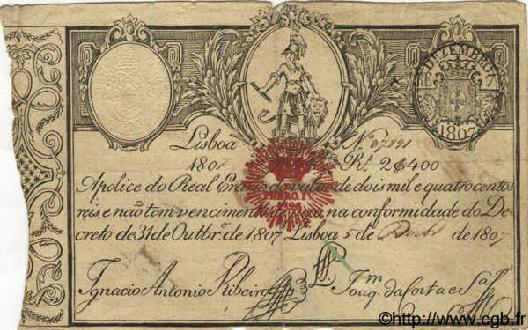 SETEMBRO
1807
Lisboa Nº
180 Rs. 2$400
Apolice do Real Er de dois mil e quatro centos
reis e não tem vencimento na conformidade do De-
creto de 31 de Outtbr.º de 1807 Lisboa 5 de de 1807
PEDRO IV
Ignacio Antonio Ribeiro
Joaq.m da Costa e
© www.cgb.fr